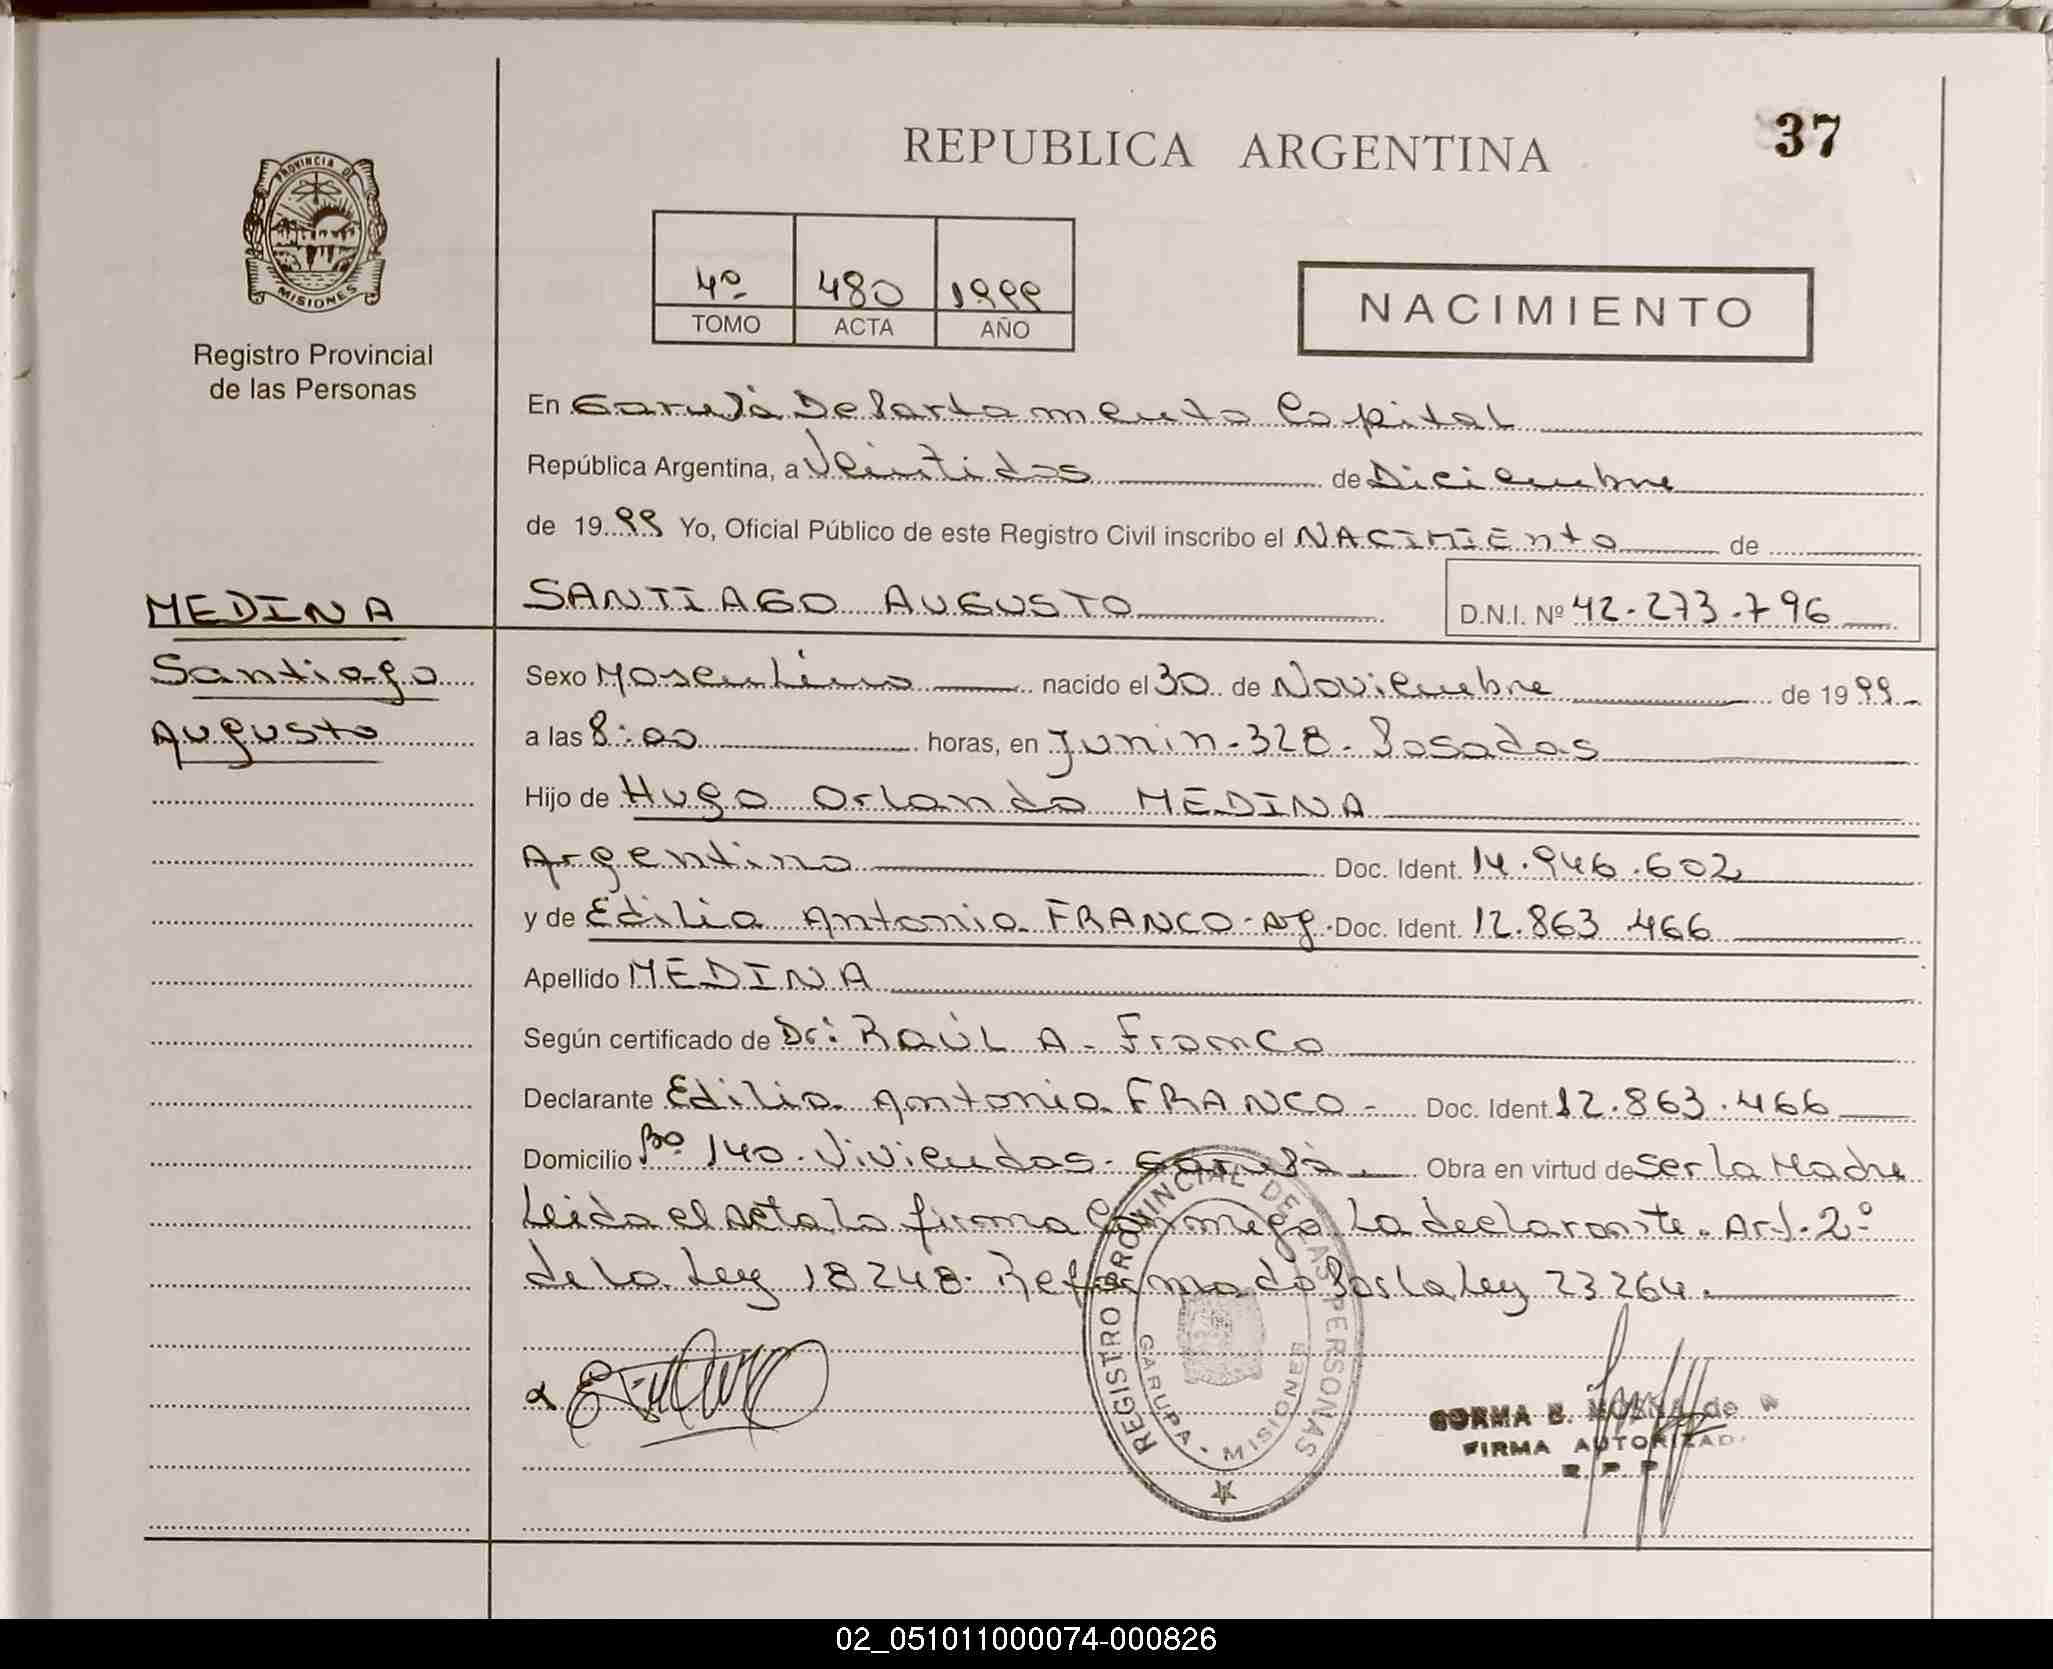 REPUBLICA ARGENTINA
37
PROVINCIA DE
MISIONES
Registro Provincial
de las Personas
4º 480 1999
TOMO ACTA AÑO
NACIMIENTO
En Garupá Departamento Capital
República Argentina, a Veintidos de Diciembre
de 1999 Yo, Oficial Público de este Registro Civil inscribo el NACIMIENTO de
MEDINA
Santiago
Augusto
SANTIAGO AUGUSTO D.N.I. Nº 42.273.796
Sexo Masculino nacido el 30 de Noviembre de 1999
a las 8:00 horas, en Junin-328-Posadas
Hijo de Hugo Orlando MEDINA
Argentino Doc. Ident. 14.946.602
y de Edilia Antonia FRANCO-Ag. Doc. Ident. 12.863.466
Apellido MEDINA
Según certificado de Dr: RAÚL A. Franco
Declarante Edilia Antonia FRANCO- Doc. Ident. 12.863.466
Domicilio Bº 140-Viviendas-Garupá Obra en virtud de Ser la Madre
Leida el acta la firma Conmigo La declarante. Art. 2º
de la Ley 18248. Reformado Por la Ley 23264.
REGISTRO PROVINCIAL DE LAS PERSONAS
GARUPA - MISIONES
FIRMA AUTORIZAD
R P P
02_051011000074-000826